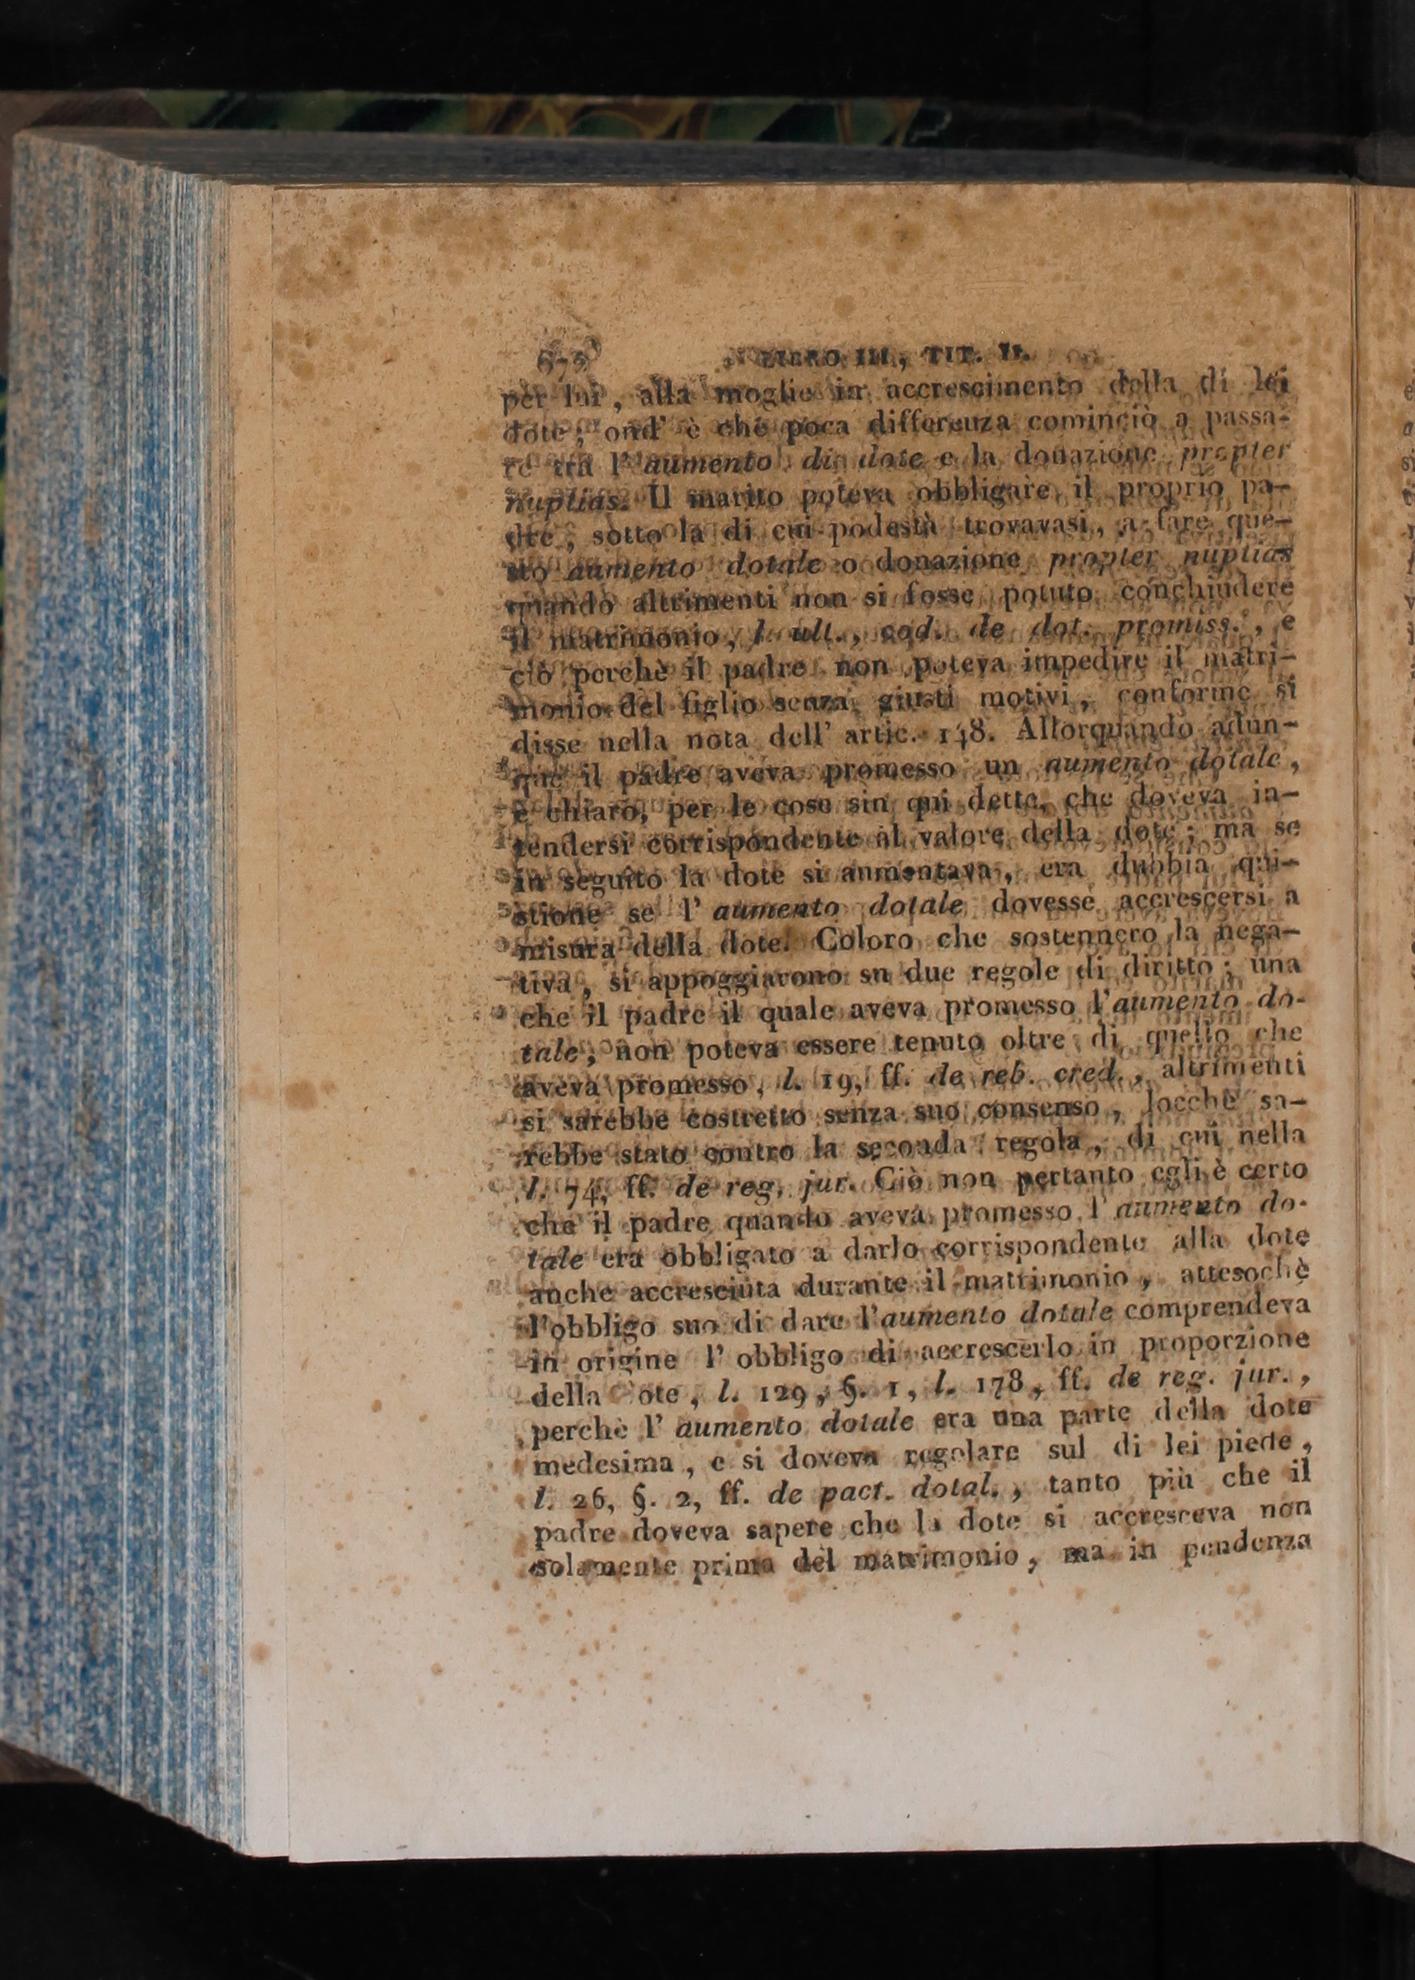 LIBRO III, TIT. II.
per lui, alla moglie in accrescimento della di lei
dote, ond' è che poca differenza cominciò a passa-
re tra l' aumento di dote e la donazione propter
nuptias. Il marito poteva obbligare il proprio pa-
dre, sotto la di cui podestà trovavasi, a fare que-
sto aumento dotale o donazione propter nuptias
quando altrimenti non si fosse potuto conchiudere
il matrimonio, l. ult., cod. de dot. promiss., e
ciò perchè il padre non poteva impedire il matri-
monio del figlio senza giusti motivi, conforme si
disse nella nota dell' artic. 148. Allorquando adun-
que il padre aveva promesso un aumento dotale,
è chiaro, per le cose sin qui dette, che doveva in-
tendersi corrispondente al valore della dote; ma se
in seguito la dote si aumentava, era dubbia qui-
stione se l' aumento dotale dovesse accrescersi a
misura della dote. Coloro che sostennero la nega-
tiva, si appoggiavono su due regole di diritto; una
che il padre il quale aveva promesso l'aumento do-
tale, non poteva essere tenuto oltre di quello che
aveva promesso, l. 19, ff. de reb. cred., altrimenti
si sarebbe costretto senza suo consenso, locchè sa-
rebbe stato contro la seconda regola, di cui nella
l. 74, ff. de reg. jur. Ciò non pertanto egli è certo
che il padre quando aveva promesso l' aumento do-
tale era obbligato a darlo corrispondente alla dote
anche accresciuta durante il matrimonio, attesochè
l'obbligo suo di dare l'aumento dotale comprendeva
in origine l' obbligo di accrescerlo in proporzione
della ote, l. 129, §. 1, l. 178, ff. de reg. jur.,
perchè l' aumento dotale era una parte della dote
medesima, e si doveva regolare sul di lei piede,
l. 26, §. 2, ff. de pact. dotal., tanto più che il
padre doveva sapere che la dote si accresceva non
solamente prima del matrimonio, ma in pendenza